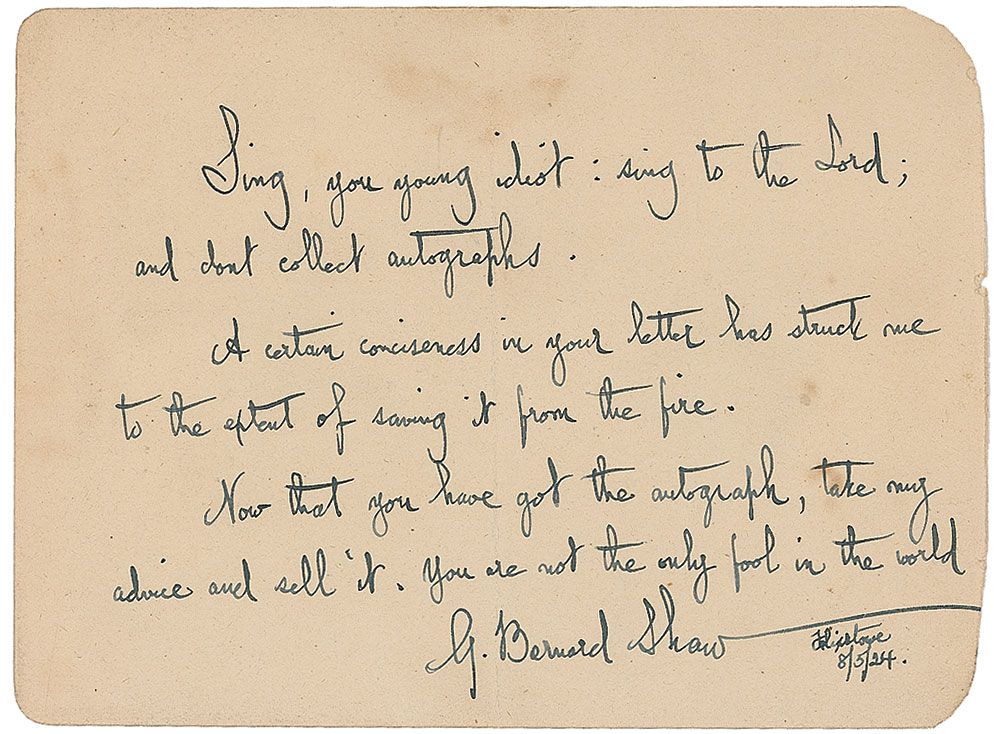 Sing, you young idiot : sing to the Lord;
and dont collect autographs.
A certain conciseness in your letter has struck me
to the extent of saving it from the fire.
Now that you have got the autograph, take my
advice and sell it. You are not the only fool in the world
G. Bernard Shaw
8/5/24.